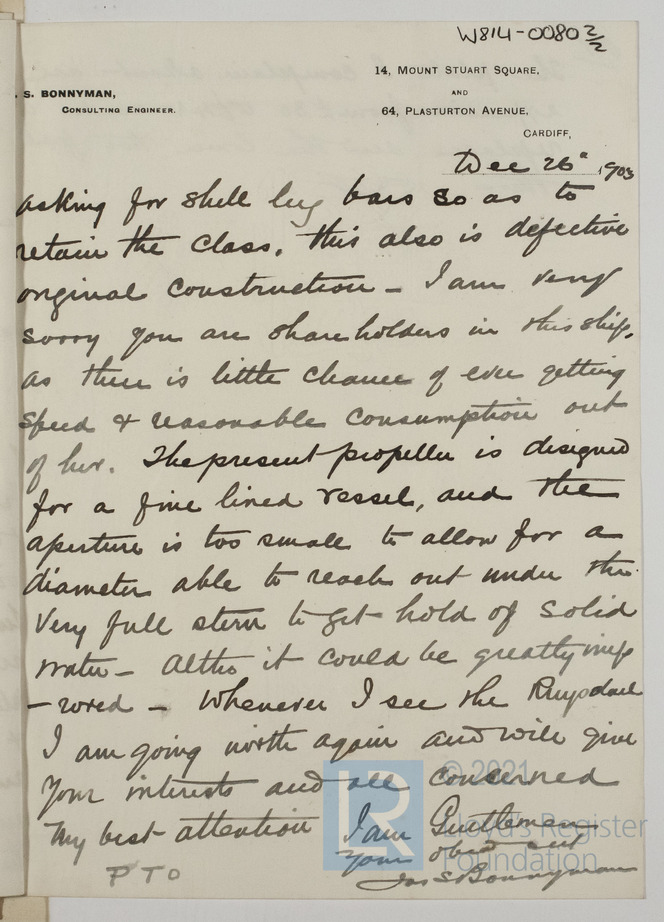 W814-0080 2/2
14, MOUNT STUART SQUARE,
AND
. S. BONNYMAN,
CONSULTING ENGINEER.
64, PLASTURTON AVENUE,
CARDIFF,
Dec 26" 1903
asking for shell lug bars so as to
retain the class. This also is defective
original construction - I am very
sorry you are shareholders in this ship,
as there is little chance of ever getting
speed & reasonable consumption out
of her. The present propeller is designed
for a fine lined vessel, and the
aperture is too small to allow for a
diameter able to reach out under the
very full stern to get hold of solid
water - Altho it could be greatly imp
-roved - Whenever I see the Ruysdael
I am going north again and will give
your interests and all concerned
my best attention I am Gentlemen
Your obed svt
Jas S Bonnyman
PTO
© 2021
LR
Lloyd's Register
Foundation